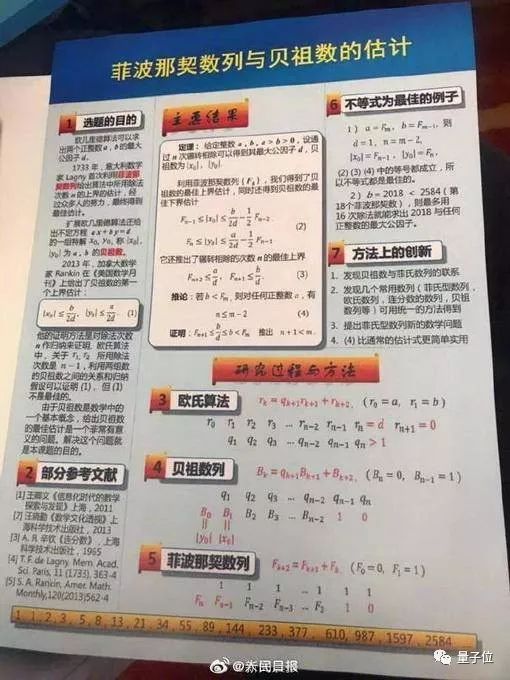 菲波那契数列与贝祖数的估计
1 选题的目的
欧几里德算法可以求
出两个正整数 a, b 的最大
公因子 d.
1733 年，意大利数学
家 Lagny 首次利用菲波那
契数列给出算法中所用除法
次数 n 的上界的估计，经
过众多人的努力，最终得到
最佳估计。
扩展欧几里德算法还给
出不定方程 ax + by = d
的一组特解 x₀, y₀, 称 |x₀|,
|y₀| 为 a, b 的贝祖数。
2013 年，加拿大数学
家 Rankin 在《美国数学月
刊》上给出了贝祖数的第一
个上界估计：
|x₀| ≤ b/2d, |y₀| ≤ a/2d (1)
他的证明方法是对除法次数
n 作归纳来证明。欧氏算法
中，关于 r₁, r₂ 所用除法
次数是 n − 1，利用两组数
的贝祖数之间的关系和归纳
假设可以证明 (1)，但 (1)
不是最佳的。
由于贝祖数是数学中的
一个基本概念，给出贝祖数
的最佳估计是一个非常有意
义的问题。解决这个问题就
是本课题的目的。
2 部分参考文献
[1] 王卿文《信息化时代的数学
探索与发现》上海，2011
[2] 王晓勤《数学文化透视》上
海科学技术出版社，2013
[3] A. Я. 辛钦《连分数》，上海
科学技术出版社，1965
[4] T. F. de Lagny. Mem. Acad.
Sci. Paris, 11 (1733), 363-4
[5] S. A. Rankin, Amer. Math.
Monthly,120(2013)562-4
主要结果
定理：给定整数 a, b, a > b > 0，设通
过 n 次辗转相除可以得到其最大公因子 d，贝
祖数为 |x₀|, |y₀|.
利用菲波那契数列 {Fₙ}，我们得到了贝
祖数的最佳上界估计，同时还得到贝祖数的最
佳下界估计
Fₙ₋₁ ≤ |x₀| ≤ b/2d − 1/2 Fₙ₋₂
(2)
Fₙ ≤ |y₀| ≤ a/2d − 1/2 Fₙ₋₁
它还推出了辗转相除的次数 n 的最佳上界
Fₙ₊₂ ≤ a/d, Fₙ₊₁ ≤ b/d. (3)
推论：若 b < Fₘ, 则对任何正整数 a，有
n ≤ m − 2 (4)
证明：Fₙ₊₁ ≤ b/d ≤ b < Fₘ 推出 n + 1 < m.
6 不等式为最佳的例子
1） a = Fₘ, b = Fₘ₋₁, 则
d = 1, n = m − 2,
|x₀| = Fₙ₋₁, |y₀| = Fₙ.
(2) (3) (4) 中的等号都成立，所
以不等式都是最佳的。
2）b = 2018 < 2584（第
18个菲波那契数），则最多用
16 次除法就能求出 2018 与任何
正整数的最大公因子。
7 方法上的创新
1. 发现贝祖数与菲氏数列的联系
2. 发现几个常用数列（菲氏型数列，
欧氏数列，连分数的数列，贝祖
数列等）可用统一的方法得到
3. 提出菲氏型数列新的数学问题
4. (4) 比通常的估计式更简单实用
研究过程与方法
3 欧氏算法 rₖ = qₖ₊₁rₖ₊₁ + rₖ₊₂, (r₀ = a, r₁ = b)
r₀ r₁ r₂ r₃ … rₙ₋₂ rₙ₋₁ rₙ = d rₙ₊₁ = 0
q₁ q₂ q₃ … qₙ₋₂ qₙ₋₁ qₙ > 1
4 贝祖数列 Bₖ = qₖ₊₁Bₖ₊₁ + Bₖ₊₂, (Bₙ = 0, Bₙ₋₁ = 1)
q₁ q₂ q₃ … qₙ₋₂ qₙ₋₁ qₙ
B₀ B₁ B₂ B₃ … Bₙ₋₂ 1 0
|| ||
|y₀| |x₀|
5 菲波那契数列 Fₖ₊₂ = Fₖ₊₁ + Fₖ (F₀ = 0, F₁ = 1)
1 1 1 … 1 1 1
Fₙ Fₙ₋₁ Fₙ₋₂ Fₙ₋₃ … F₂ 1 0
1, 1, 2, 3, 5, 8, 13, 21, 34, 55, 89, 144, 233, 377, 610, 987, 1597, 2584
@赤民日报
量子位